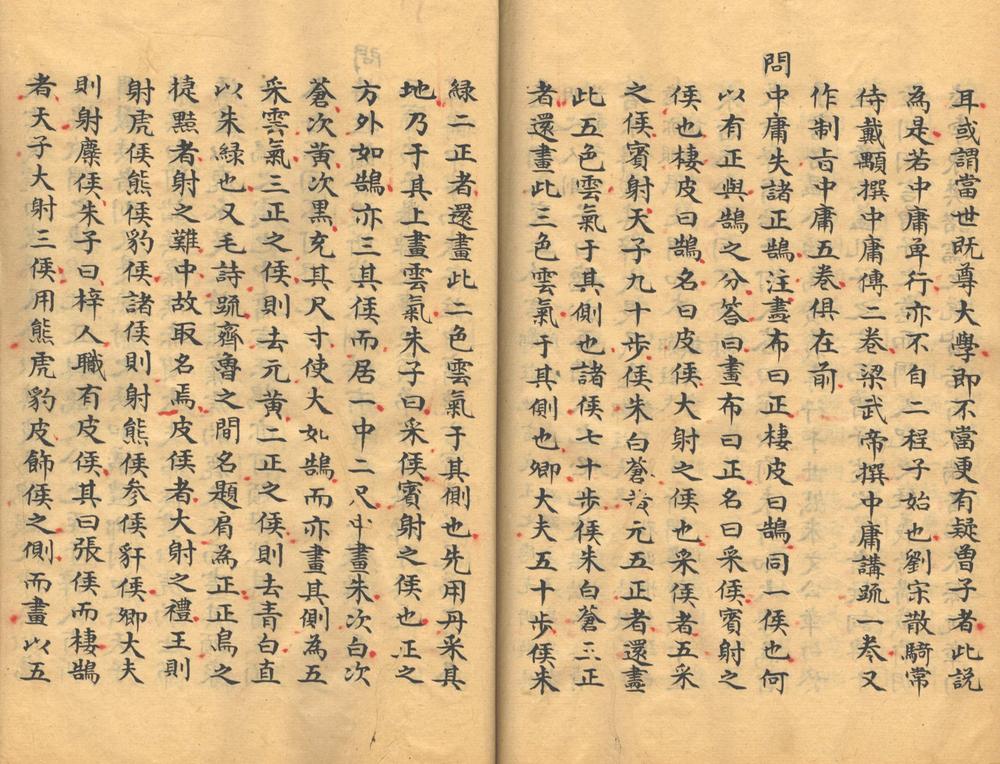 耳或謂當世既尊大學即不當更有疑曽子者此説
為是若中庸單行亦不自二程子始也劉宋散騎常
侍戴顒撰中庸傳二卷梁武帝撰中庸講䟽一卷又
作制旨中庸五卷俱在前
問中庸失諸正鵠注畫布曰正棲皮曰鵠同一侯也何
以有正與鵠之分答曰畫布曰正名曰采侯賓射之
侯也棲皮曰鵠名曰皮侯大射之侯也采侯者五采
之侯賓射天子九十步侯朱白蒼黄元五正者還畫
此五色雲氣于其側也諸侯七十步侯朱白蒼三正
者還畫此三色雲氣于其側也卿大夫五十步侯朱
緑二正者還畫此二色雲氣于其側也先用丹采其
地乃于其上畫雲氣朱子曰采侯賓射之侯也正之
方外如鵠亦三其侯而居一中二尺中畫朱次白次
蒼次黄次黒充其尺寸使大如鵠而亦畫其側為五
采雲氣三正之侯則去元黄二正之侯則去青白直
以朱緑也又毛詩䟽齊魯之間名題肩為正正鳥之
㨗黠者射之難中故取名焉皮侯者大射之禮王則
射虎侯熊侯豹侯諸侯則射熊侯参侯豻侯卿大夫
則射麋侯朱子曰梓人職有皮侯其曰張侯而棲鵠
者天子大射三侯用熊虎豹皮飾侯之側而畫以五